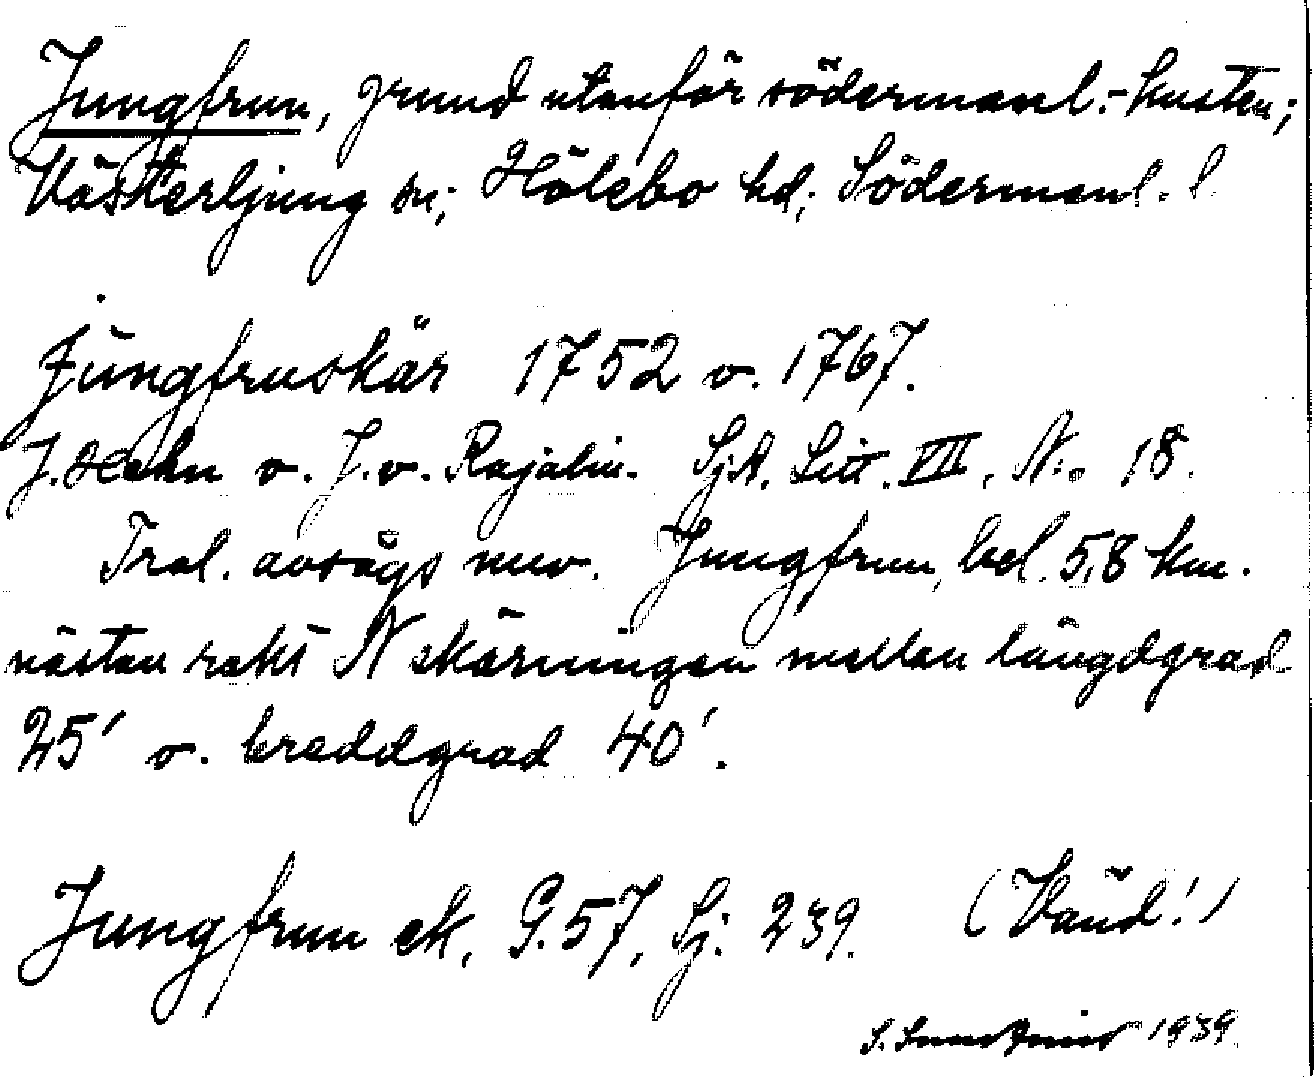 Jungfrun, grund utanför södermanl.-kusten;
Västerljung sn; Hölebo hd; Södermanl. l
Jungfruskär 1752 o. 1767.
J. Hahn o. J. v. Rajalin. SjA. Litt. VII. N:o 18.
Trol. avsågs nuv. Jungfrun, bel. 5,8 km.
nästan rakt N skärningen mellan längdgrad
25' o. breddgrad 40'.
Jungfrun ek. G.57, Sj. 239. (Vänd!)
S. 1939.